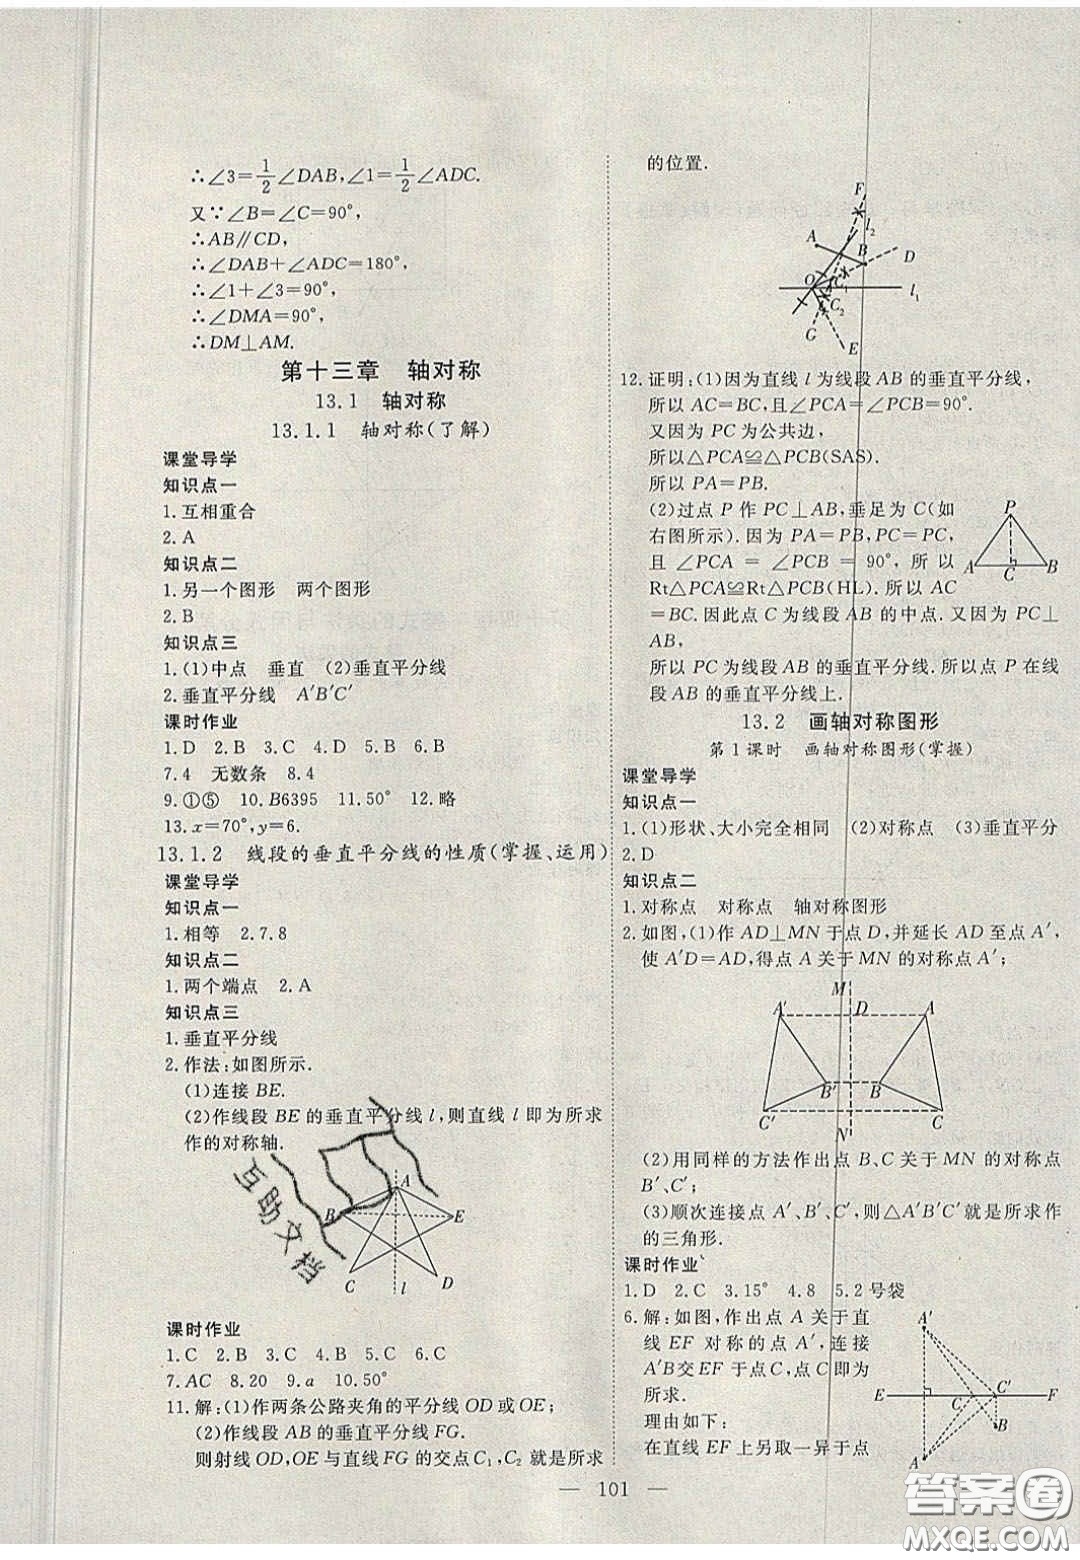 ∴∠3=1/2∠DAB,∠1=1/2∠ADC.
又∵∠B=∠C=90°,
∴AB∥CD,
∴∠DAB+∠ADC=180°,
∴∠1+∠3=90°,
∴∠DMA=90°,
∴DM⊥AM.
第十三章 轴对称
13.1 轴对称
13.1.1 轴对称(了解)
课堂导学
知识点一
1.互相重合
2.A
知识点二
1.另一个图形 两个图形
2.B
知识点三
1.(1)中点 垂直 (2)垂直平分线
2.垂直平分线 A′B′C′
课时作业
1.D 2.B 3.B 4.C 5.D 6.B
7.4 无数条 8.4
9.①⑤ 10.B6395 11.50° 12.略
13.x=70°,y=6.
13.1.2 线段的垂直平分线的性质(掌握、运用)
课堂导学
知识点一
1.相等 2.7.8
知识点二
1.两个端点 2.A
知识点三
1.垂直平分线
2.作法:如图所示.
(1)连接BE.
(2)作线段BE的垂直平分线l,则直线l即为所求
作的对称轴.
A
B
E
C
l
D
互助文档
课时作业
1.C 2.B 3.D 4.C 5.B 6.C
7.AC 8.20 9.a 10.50°
11.解:(1)作两条公路夹角的平分线OD或OE;
(2)作线段AB的垂直平分线FG.
则射线OD,OE与直线FG的交点C₁,C₂就是所求
的位置.
F
l₂
A
B
D
O
C₁
l₁
C₂
G
E
12.证明:(1)因为直线l为线段AB的垂直平分线,
所以AC=BC,且∠PCA=∠PCB=90°.
又因为PC为公共边,
所以△PCA≌△PCB(SAS).
所以PA=PB.
(2)过点P作PC⊥AB,垂足为C(如
右图所示).因为PA=PB,PC=PC,
且∠PCA=∠PCB=90°,所以
Rt△PCA≌Rt△PCB(HL).所以AC
=BC.因此点C为线段AB的中点.又因为PC⊥
AB,
所以PC为线段AB的垂直平分线.所以点P在线
段AB的垂直平分线上.
P
A
C
B
13.2 画轴对称图形
第1课时 画轴对称图形(掌握)
课堂导学
知识点一
1.(1)形状、大小完全相同 (2)对称点 (3)垂直平分
2.D
知识点二
1.对称点 对称点 轴对称图形
2.如图,(1)作AD⊥MN于点D,并延长AD至点A′,
使A′D=AD,得点A关于MN的对称点A′;
M
A′
D
A
B′
B
C′
N
C
(2)用同样的方法作出点B、C关于MN的对称点
B′、C′;
(3)顺次连接点A′、B′、C′,则△A′B′C′就是所求作
的三角形.
课时作业
1.D 2.C 3.15° 4.8 5.2号袋
6.解:如图,作出点A关于直
线EF对称的点A′,连接
A′B交EF于点C,点C即为
所求.
理由如下:
在直线EF上另取一异于点
A′
E
C
C′
F
B
A
— 101 —
答案圈
MXQE.COM